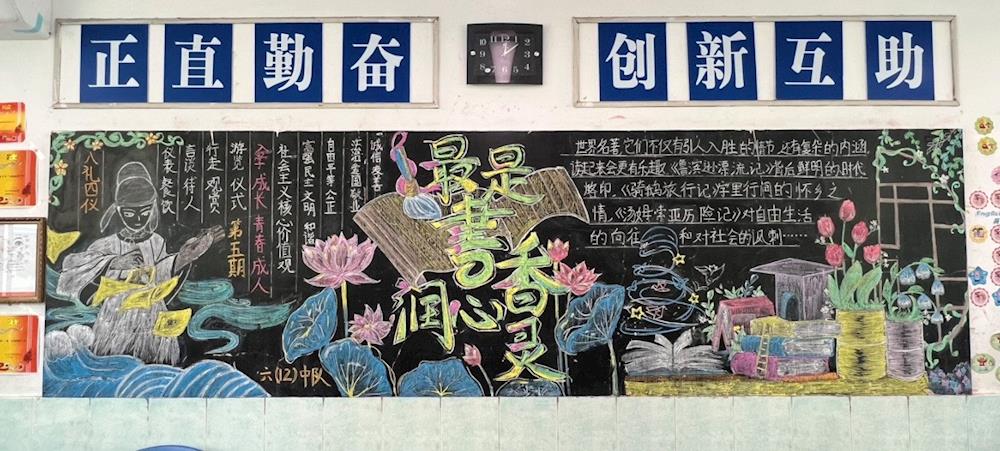 正直勤奋
创新互助
八礼四仪
仪表 餐饮
言谈 待人
行走 观赏
游览 仪式
第五期
伞下成长 青春成人
社会主义核心价值观
富强民主文明 和谐
自由平等 公正
法治爱国敬业
诚信 友善
六(12)中队
最是書香
润心灵
世界名著它们不仅有引人入胜的情节,还有复杂的内涵
读起来会更有乐趣《鲁滨逊漂流记》背后鲜明的时代
烙印,《骑鹅旅行记》字里行间的怀乡之
情,《汤姆索亚历险记》对自由生活
的向往 和对社会的讽刺……